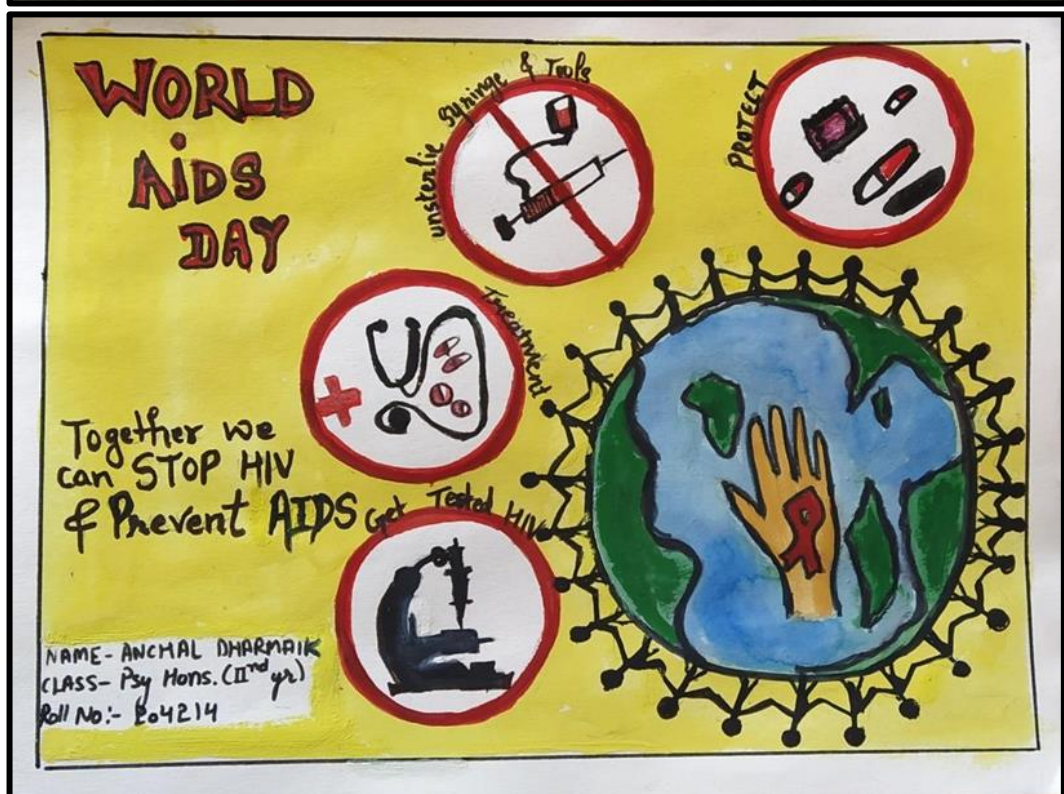 WORLD
AiDS
DAY
unsterlie Syringe & Tools
PROTECT
Treatment
Together we
can STOP HIV
& Prevent AIDS
Get Tested HIV
NAME- ANCHAL DHARMAIK
CLASS- Psy Hons. (IInd yr)
Roll No:- 204214